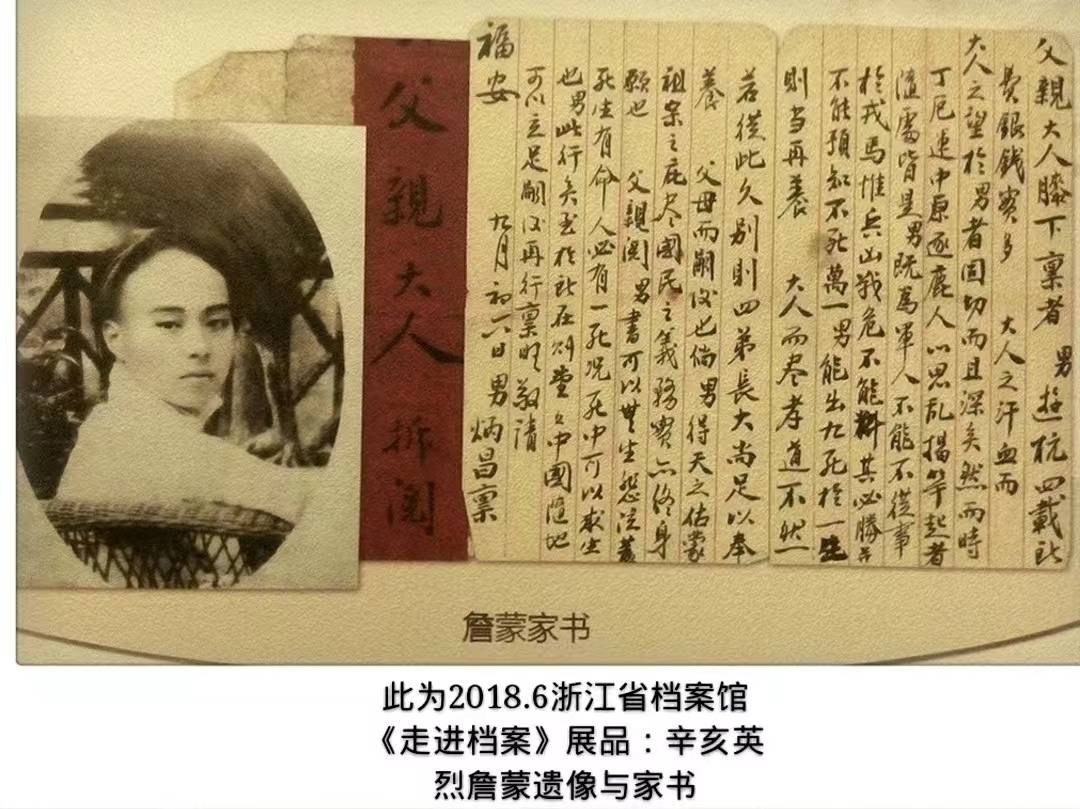 父親大人膝下稟者 男遊杭四載所
費銀錢實多 大人之汗血而
大人之望於男者固切而且深矣然而時
丁厄運中原逐鹿人心思亂揭竿起者
處皆是男既為軍人不能不從事
於戎馬惟兵凶戰危不能料其必勝亦
不能預知不死萬一男能出九死於一生
則當再養 大人而盡孝道不然一
若從此久別則四弟長大尚足以奉
養 父母而嗣後也倘男得天之佑蒙
祖宗之庇盡國民之義務實亦終身
願也 父親閱男書可以無生怨泣蓋
死生有命人必有一死况死中可以求生
也男此行矣至於所在則堂々中國隨地
可以立足嗣後再行稟明敬請
福安
九月初六日 男炳昌稟
父親大人拆閱
詹蒙家书
此为2018.6浙江省档案馆
《走进档案》展品：辛亥英
烈詹蒙遗像与家书